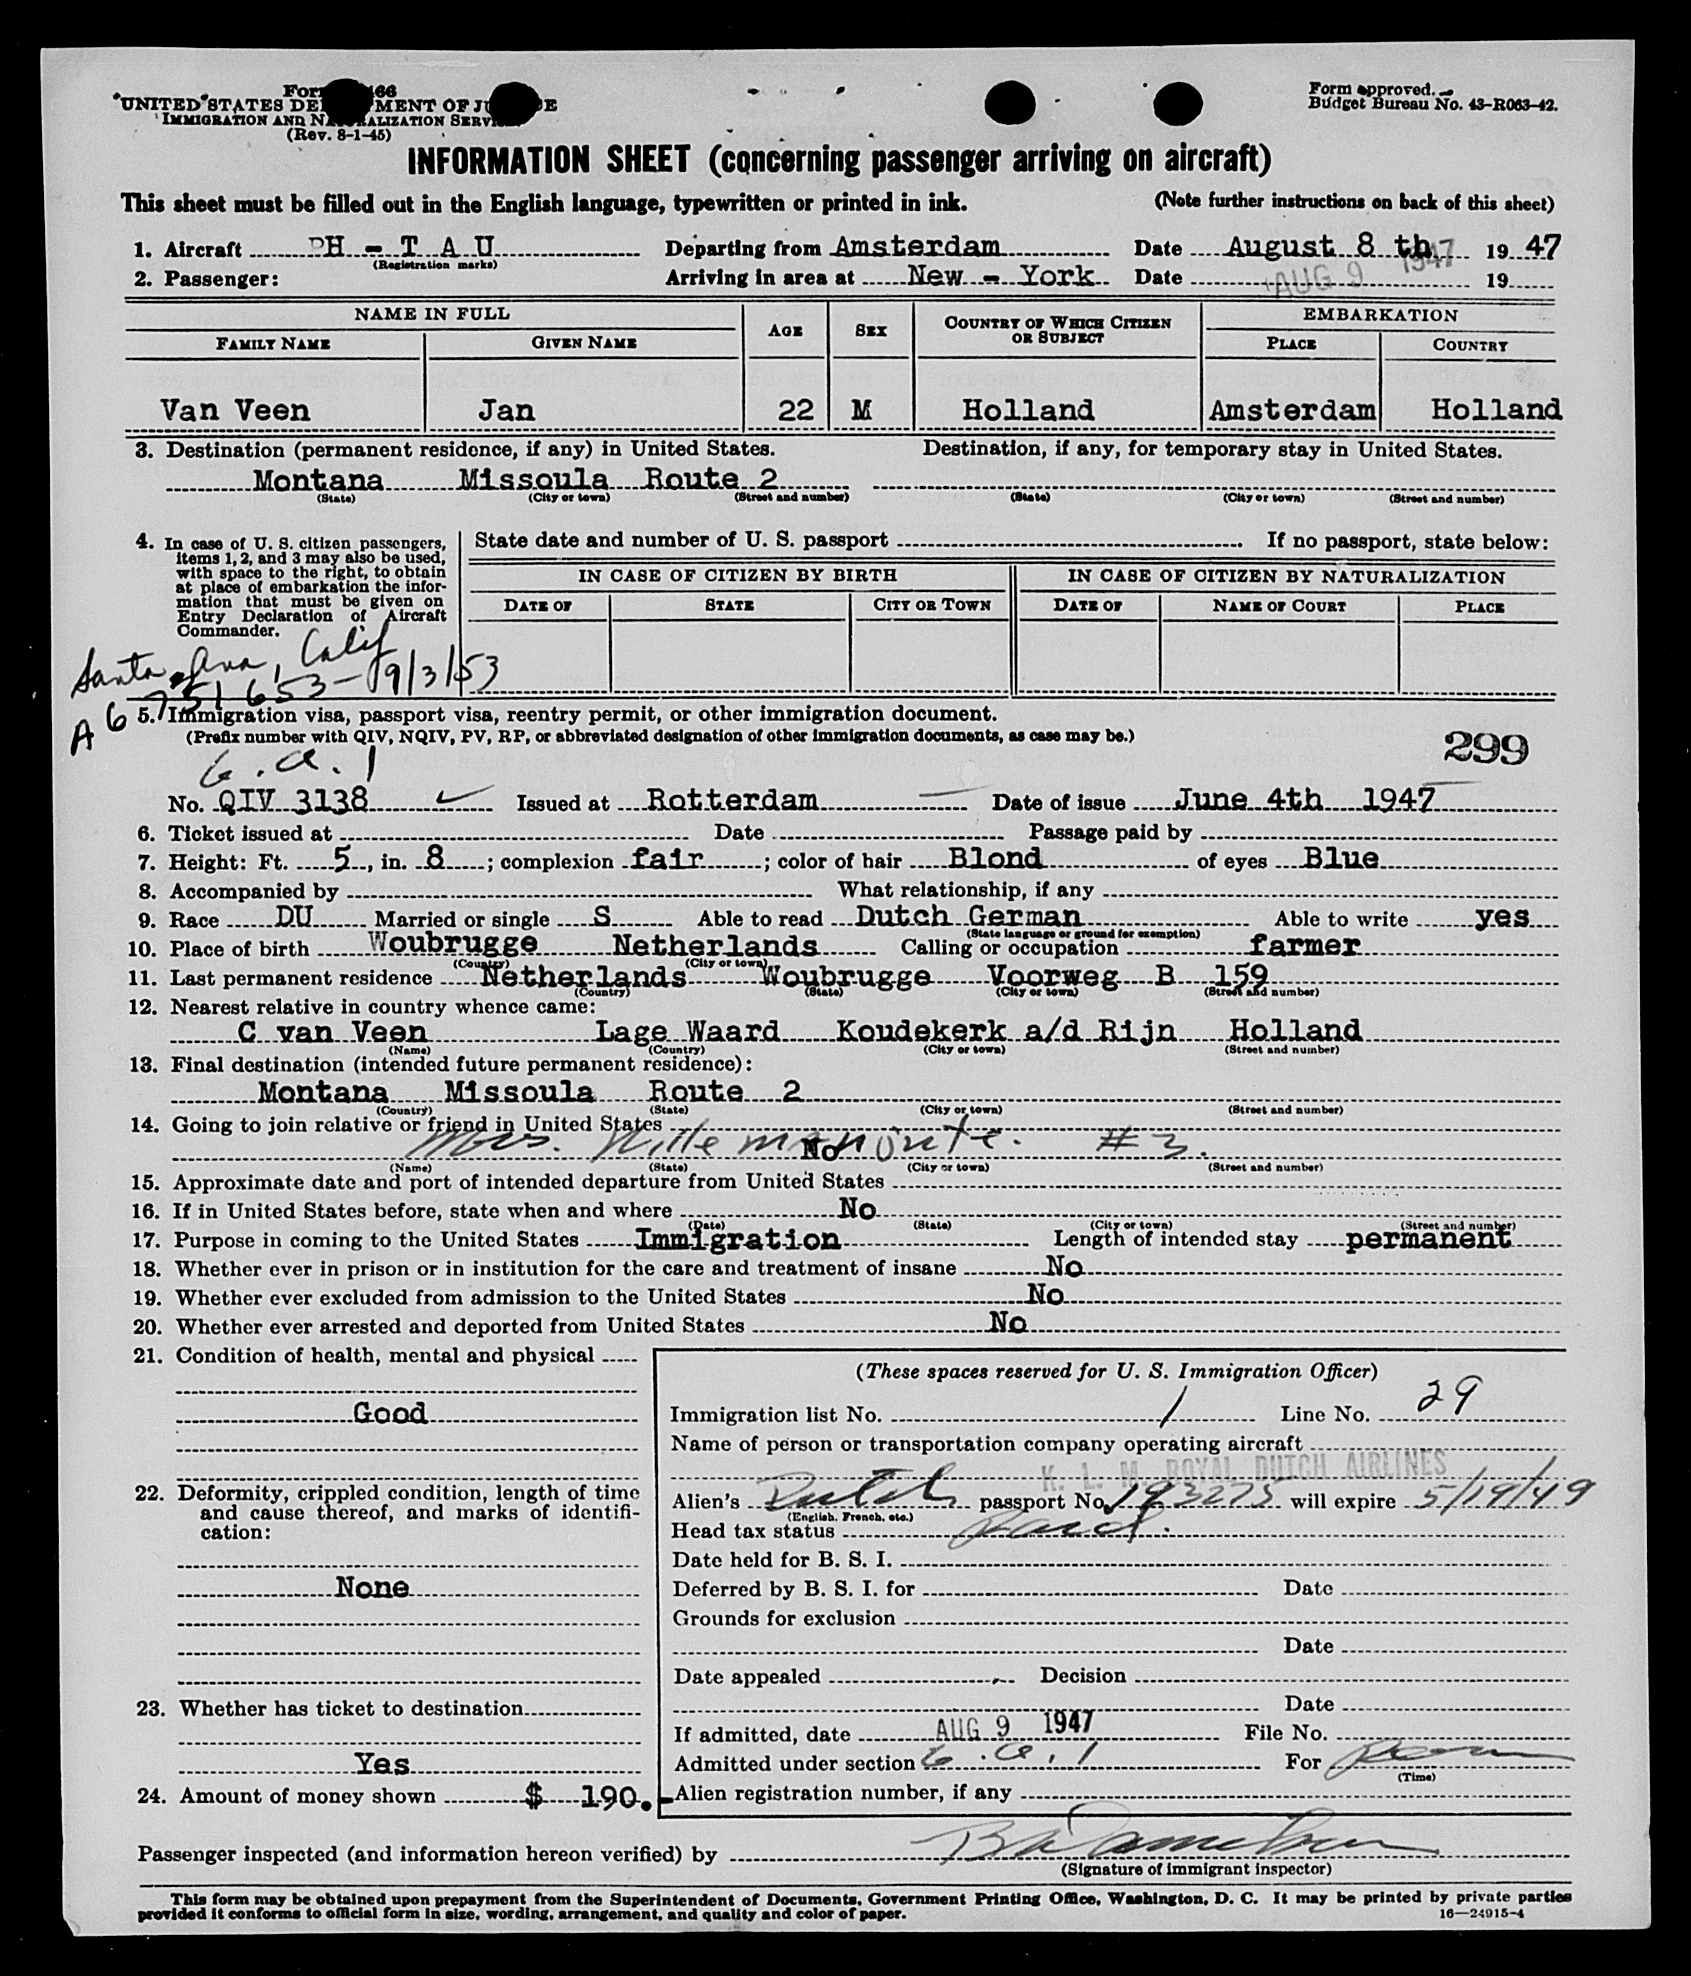 Form 466
UNITED STATES DEPARTMENT OF JUSTICE
IMMIGRATION AND NATURALIZATION SERVICE
(Rev. 8-1-45)
Form approved.
Budget Bureau No. 43-R063-42.
INFORMATION SHEET (concerning passenger arriving on aircraft)
This sheet must be filled out in the English language, typewritten or printed in ink. (Note further instructions on back of this sheet)
1. Aircraft PH - T A U Departing from Amsterdam Date August 8 th 1947
(Registration marks)
2. Passenger: Arriving in area at New - York Date AUG 9 1947 19
NAME IN FULL AGE SEX COUNTRY OF WHICH CITIZEN OR SUBJECT EMBARKATION
FAMILY NAME GIVEN NAME PLACE COUNTRY
Van Veen Jan 22 M Holland Amsterdam Holland
3. Destination (permanent residence, if any) in United States. Destination, if any, for temporary stay in United States.
Montana Missoula Route 2
(State) (City or town) (Street and number) (State) (City or town) (Street and number)
4. In case of U. S. citizen passengers, items 1, 2, and 3 may also be used, with space to the right, to obtain at place of embarkation the information that must be given on Entry Declaration of Aircraft Commander.
State date and number of U. S. passport If no passport, state below:
IN CASE OF CITIZEN BY BIRTH IN CASE OF CITIZEN BY NATURALIZATION
DATE OF STATE CITY OR TOWN DATE OF NAME OF COURT PLACE
Santa Ana, Calif
A6 751 653 - 9/3/53
5. Immigration visa, passport visa, reentry permit, or other immigration document.
(Prefix number with QIV, NQIV, PV, RP, or abbreviated designation of other immigration documents, as case may be.)
299
6.a.1
No. QIV 3138 Issued at Rotterdam Date of issue June 4th 1947
6. Ticket issued at Date Passage paid by
7. Height: Ft. 5, in. 8; complexion fair; color of hair Blond of eyes Blue
8. Accompanied by What relationship, if any
9. Race DU Married or single S Able to read Dutch German Able to write yes
(State language or ground for exemption)
10. Place of birth Woubrugge Netherlands Calling or occupation farmer
(Country) (City or town)
11. Last permanent residence Netherlands Woubrugge Voorweg B 159
(Country) (State) (City or town) (Street and number)
12. Nearest relative in country whence came:
C van Veen Lage Waard Koudekerk a/d Rijn Holland
(Name) (Country) (City or town) (Street and number)
13. Final destination (intended future permanent residence):
Montana Missoula Route 2
(Country) (State) (City or town) (Street and number)
14. Going to join relative or friend in United States
Mrs. No # 3.
(Name) (State) (City or town) (Street and number)
15. Approximate date and port of intended departure from United States
16. If in United States before, state when and where No
(Date) (State) (City or town) (Street and number)
17. Purpose in coming to the United States Immigration Length of intended stay permanent
18. Whether ever in prison or in institution for the care and treatment of insane No
19. Whether ever excluded from admission to the United States No
20. Whether ever arrested and deported from United States No
21. Condition of health, mental and physical
Good
22. Deformity, crippled condition, length of time and cause thereof, and marks of identification:
None
23. Whether has ticket to destination
Yes
24. Amount of money shown $ 190.-
(These spaces reserved for U. S. Immigration Officer)
Immigration list No. 1 Line No. 29
Name of person or transportation company operating aircraft
K. L. M. ROYAL DUTCH AIRLINES
Alien's Dutch passport No. 193275 will expire 5/19/49
(English, French, etc.)
Head tax status Paid.
Date held for B. S. I.
Deferred by B. S. I. for Date
Grounds for exclusion
Date
Date appealed Decision
Date
If admitted, date AUG 9 1947 File No.
Admitted under section 6.a.1 For Perm
(Time)
Alien registration number, if any
Passenger inspected (and information hereon verified) by
(Signature of immigrant inspector)
This form may be obtained upon prepayment from the Superintendent of Documents, Government Printing Office, Washington, D. C. It may be printed by private parties
provided it conforms to official form in size, wording, arrangement, and quality and color of paper.
16—24915-4